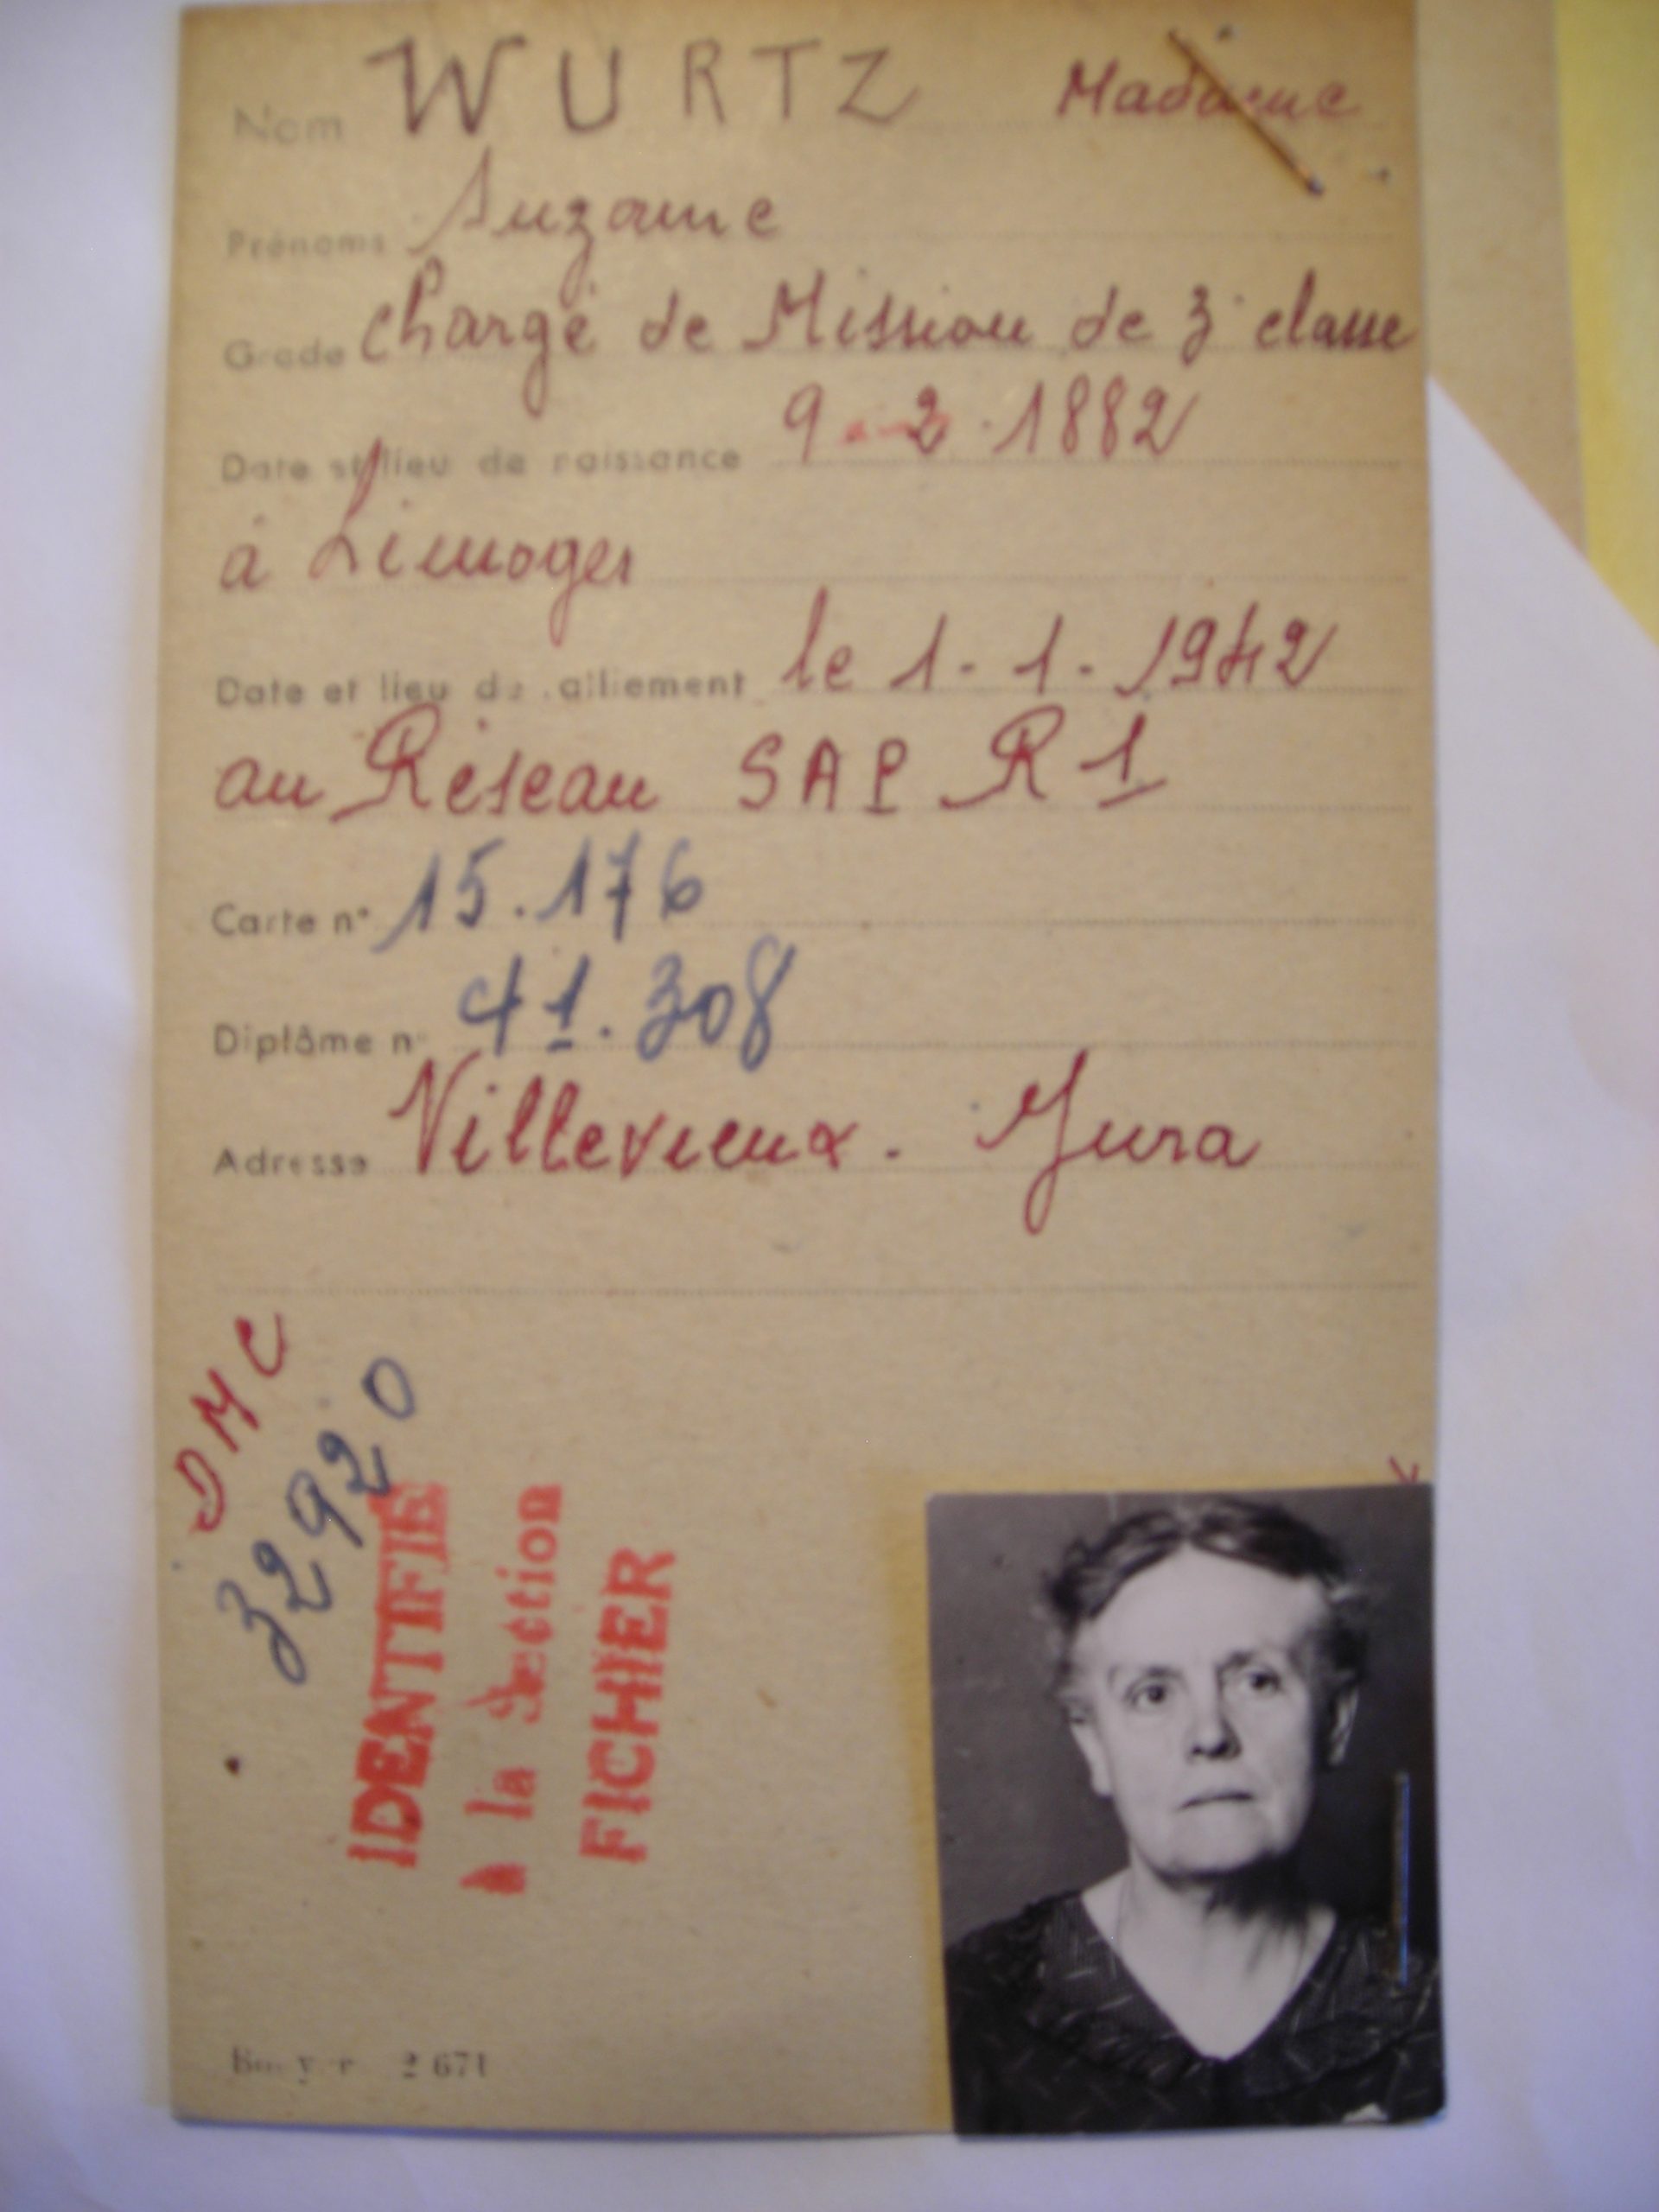 Nom WURTZ Madame
Prénoms Suzanne
Grade Chargé de Mission de 3e classe
Date et lieu de naissance 9-2-1882
à Limoges
Date et lieu de ralliement le 1-1-1942
au Réseau SAP R1
Carte n° 15.176
Diplôme n° 41.308
Adresse Villevieux. Jura
DMC
32920
IDENTIFIÉ
à la Section
FICHIER
2 671